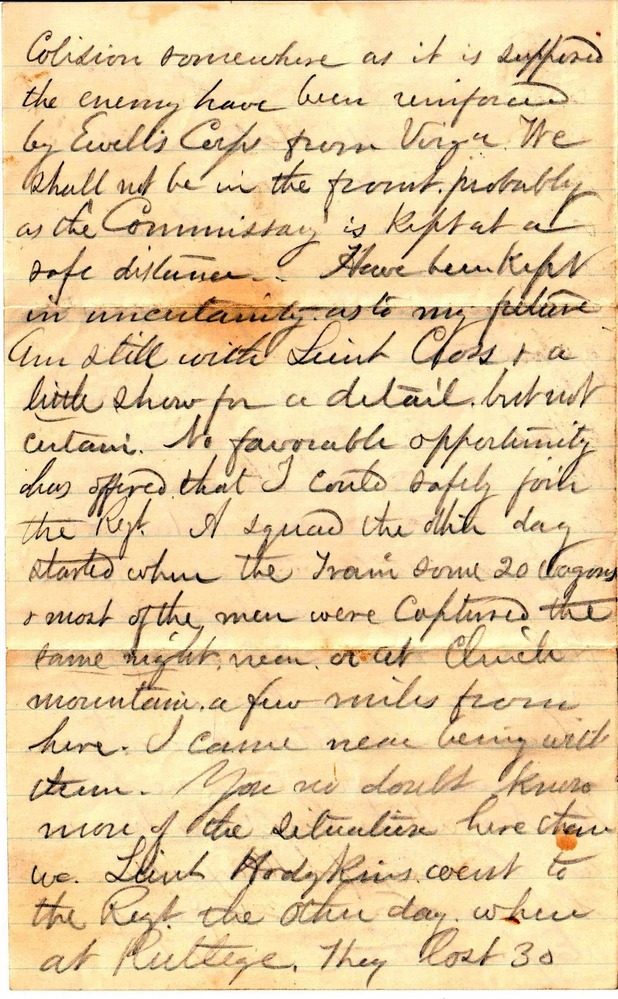 Colision somewhere as it is supposed
the enemy have been reinforced
by Ewell's Corps from Virga. We
shall not be in the front. probably
as the Commissay is Kept at a
safe distance. Have been Kept
in uncertainity as to my future
Am still with Lieut Cross & a
little show for a detail. but not
certain. No favorable opportunity
has offered that I could safely join
the Regt. A squad the other day
started when the Train some 20 wagons
& most of the men were Captured the
same night, near or at Clinch
mountain. a few miles from
here. I came near being with
them. You no doubt know
more of the situation here than
we. Lieut Hodgkins went to
the Regt. the other day. when
at Rutlege. They lost 30